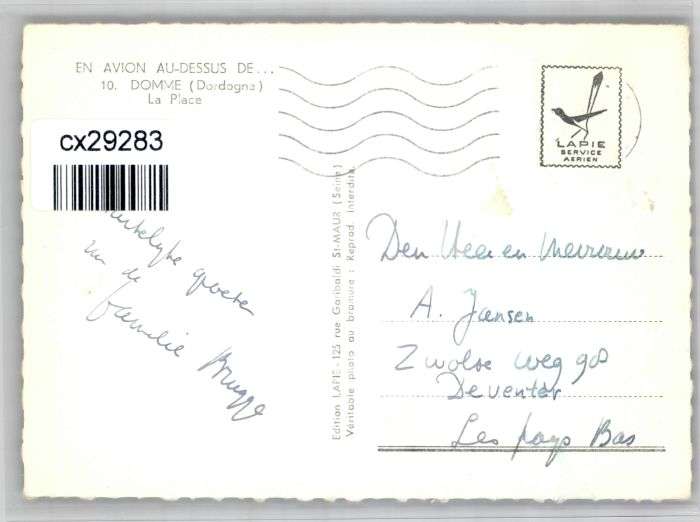 EN AVION AU-DESSUS DE...
10. DOMME (Dordogne)
La Place
LAPIE
SERVICE
AERIEN
cx29283
groeten
van de
familie Brugge
Edition LAPIE - 125 rue Garibaldi St-MAUR (Seine)
Véritable photo au bromure : Reprod. interdite.
Den Heer en Mevrouw
A. Jansen
Zwolse weg 98
Deventer
Les pays Bas